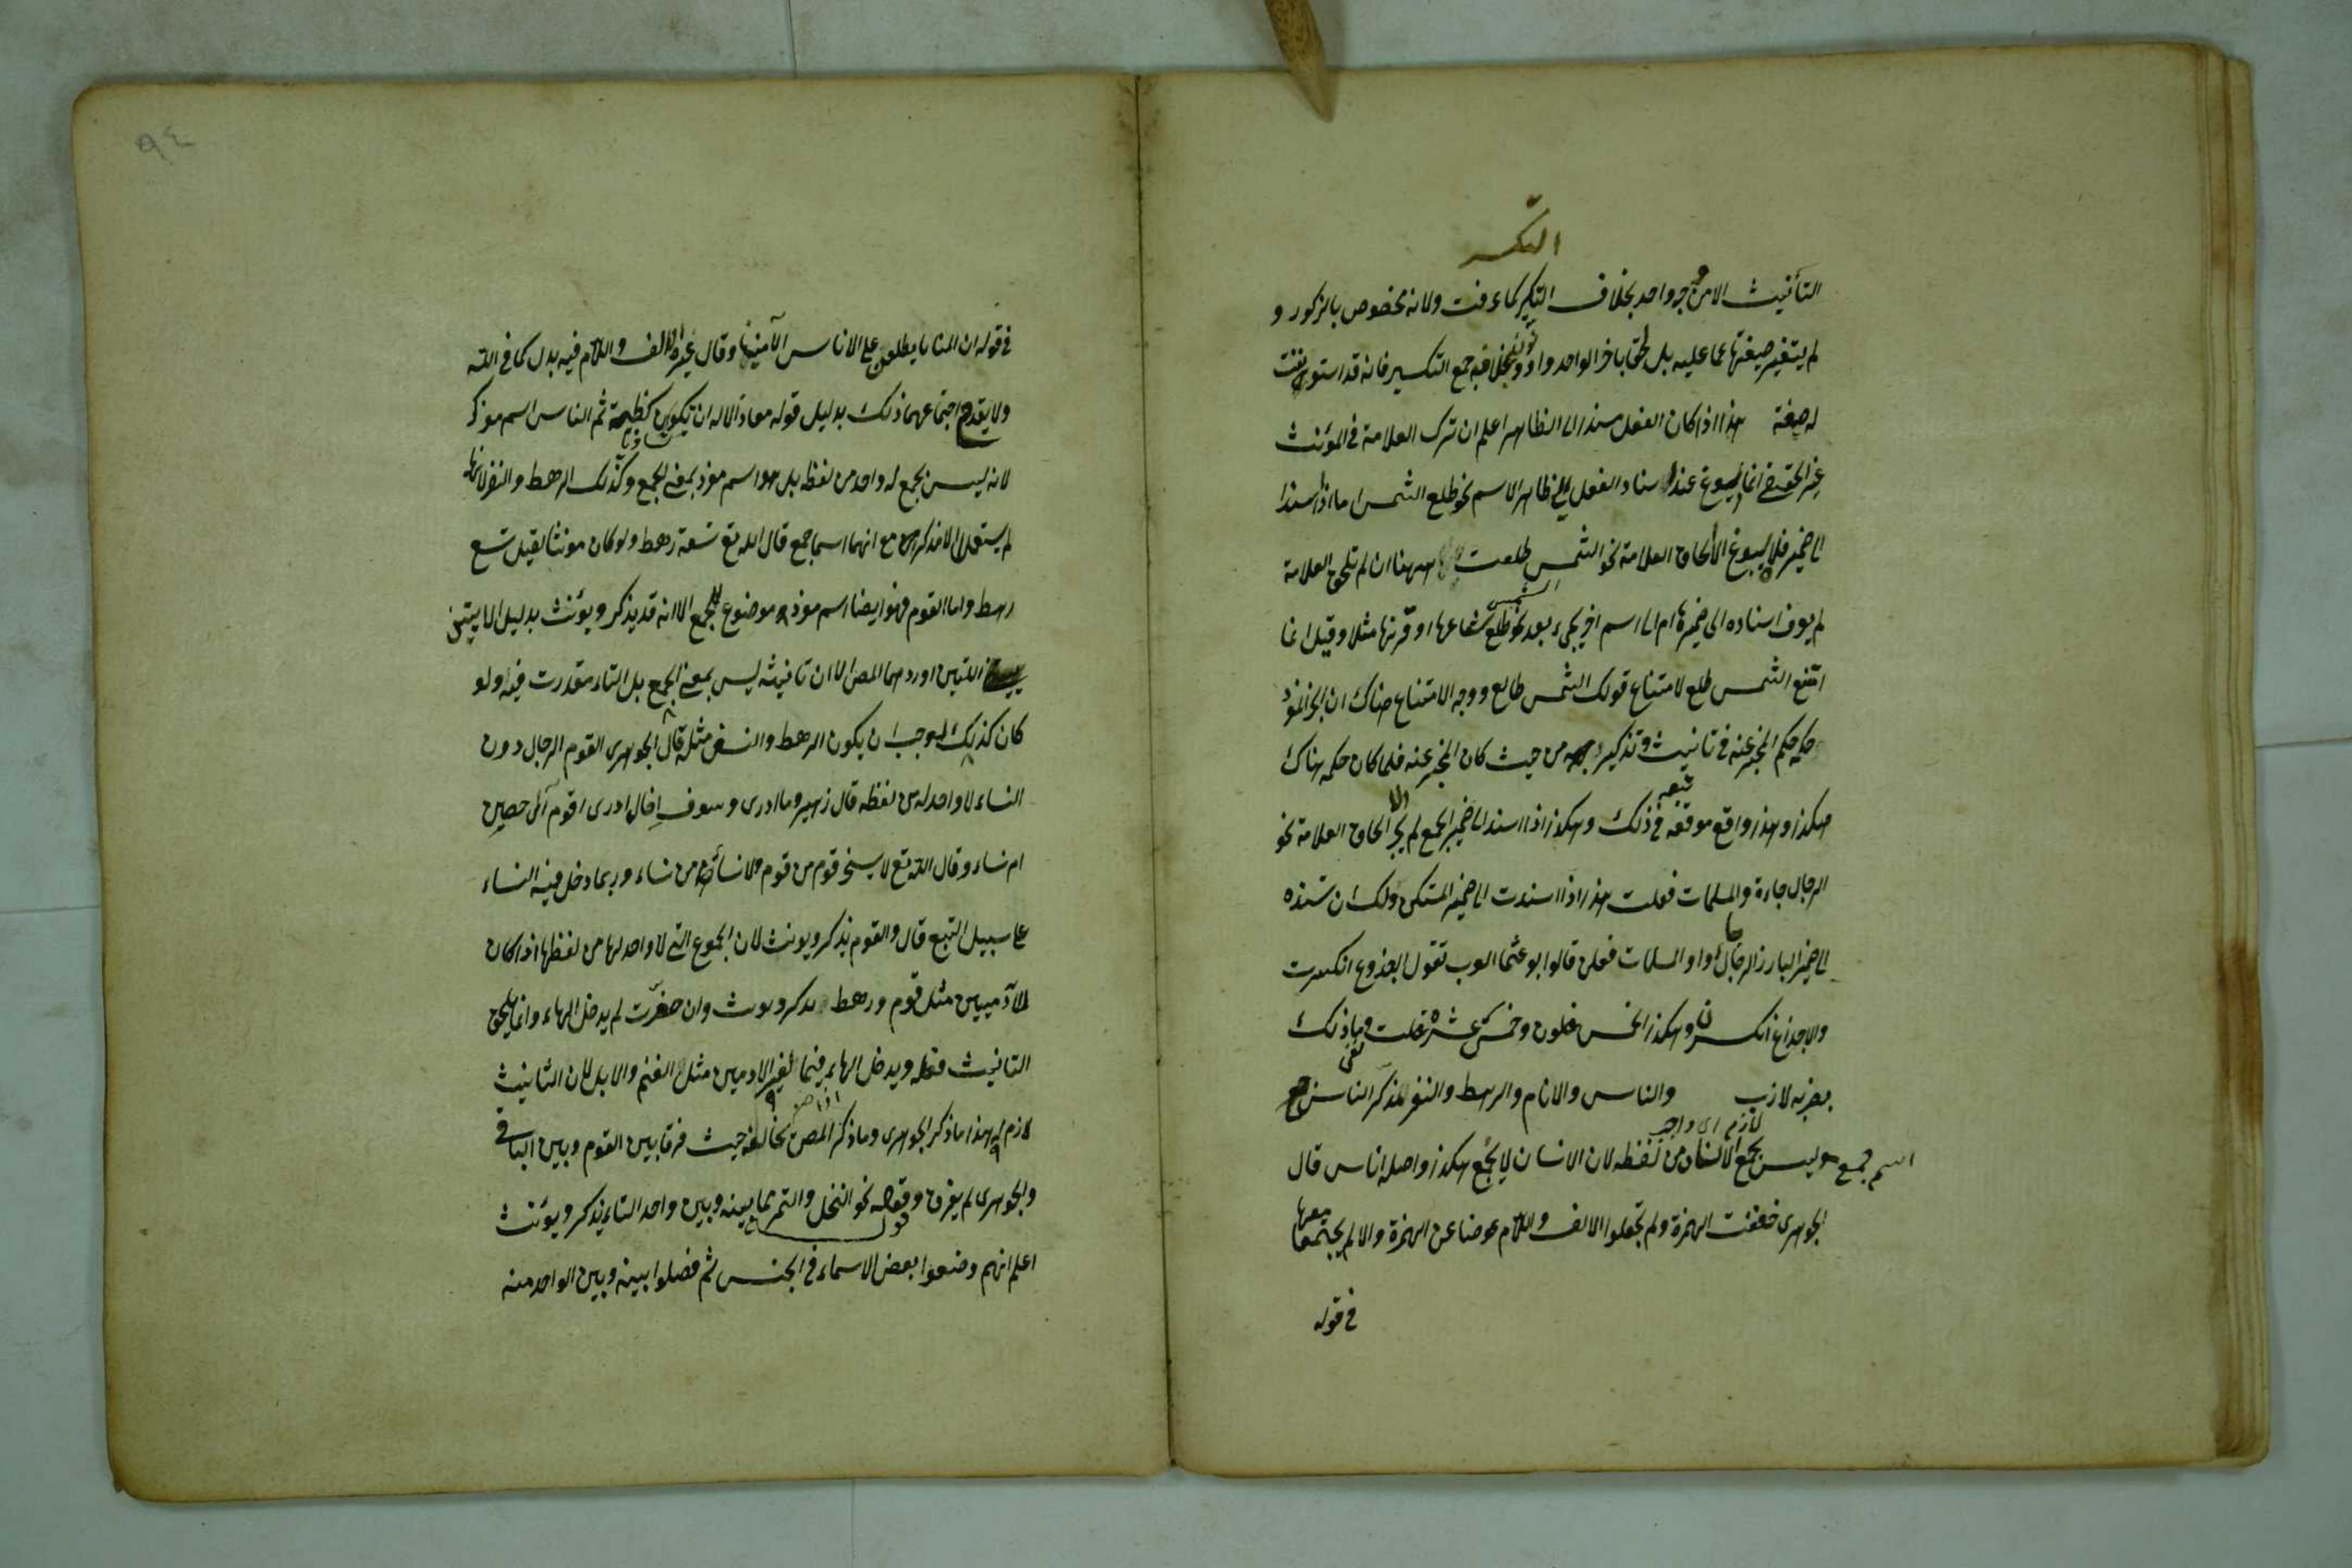 التكسير
التأنيث الا من وجه واحد بخلاف التكسير كما عرفت ولانه مخصوص بالذكور و
لم يتغير صيغتها عما عليه بل لحق باخر الواحد واو ونون بخلاف جمع التكسير فانه قد استونفت
له صيغة هذا اذا كان الفعل مسندا الى الظاهر اعلم ان ترك العلامة في المؤنث
غير الحقيقي انما يسوغ عند اسناد الفعل الى ظاهر الاسم نحو طلع الشمس اما اذا اسند
الى ضميره فلا يسوغ الا الحاق العلامة نحو الشمس طلعت ههنا ان لم تلحق العلامة
لم يعرف اسناده الى ضميرها ام الى اسم اخر يجيء بعد نحو الشمس طلع شعاعها او قرنها مثلا وقيل انما
امتنع الشمس طلع لامتناع قولك الشمس طالع ووجه الامتناع هناك ان الخبر المفرد
حكمه حكم المخبر عنه في تانيث وتذكيره من حيث كان المخبر عنه فلما كان حكمه هناك
هكذا وهذا واقع موقعه في ذلك وهكذا اذا اسند الى ضمير الجمع لم يجز الا الحاق العلامة نحو
الرجال جاءت والمسلمات فعلت هذا اذا اسندت الى ضمير المستكن ولك ان تسنده
الى ضمير البارز الرجال جاءوا والمسلمات فعلن قالوا ابو عثمان العرب تقول الجذوع انكسرت
والاجذاع انكسرن وهكذا لخمس خلون وخمس عشرة خلت وما ذلك
بضربة لازب والناس والانام والرهط والنفر المذكر الناس
لازم اى واجب
اسم جمع وليس بجمع الانسان من لفظه لان الانسان لا يجمع هكذا واصله اناس قال
الجوهرى خففت الهمزة ولم تجعلوا الالف واللام عوضا عن الهمزة والا لم يجتمعا معها
في قوله
في قوله ان المنايا يطلعن على الاناس الآمنينا وقال غيره الالف واللام فيه بدل كما في الله
ولا يقدح اجتماعهما ذلك بدليل قوله معاذ الاله ان تكون كظبية ثم الناس اسم مذكر
لانه ليس بجمع له واحد من لفظه بل هو اسم مفرد بمعنى الجمع وكذلك الرهط والنفر لانها
لم يستعمل الا مذكرا مع انهما اسما جمع قال الله تع تسعة رهط ولو كان مونثا لقيل تسع
رهط واما القوم فهو ايضا اسم مفرد موضوع للجمع الا انه قد يذكر ويؤنث بدليل الايتين
اللتين اوردهما المص الا ان تانيثه ليس بمعنى الجمع بل التاء مقدرت فيه ولو
كان كذلك لوجب ان يكون الرهط والنفر مثله قال الجوهرى القوم الرجال دون
النساء لا واحد له من لفظه قال زهير وما ادرى وسوف اخال ادرى اقوم آل حصين
ام نساء وقال الله تع لا يسخر قوم من قوم ولا نساء من نساء وربما دخل فيه النساء
على سبيل التبع قال والقوم يذكر ويونث لان الجموع التى لا واحد لها من لفظها اذا كان
للآدميين مثل قوم ورهط يذكر ويونث وان صغرت لم يدخل الهاء وانما يلحق
التانيث فعله ويدخل الهاء فيما لغير الادميين مثل الغنم والابل لان التانيث
لازم له هذا ما ذكر الجوهرى وما ذكر المص يخالفه حيث فرقا بين القوم وبين الباقى
والجوهرى لم يفرق وقوله نحو النخل والتمر مما بينه وبين واحد التاء يذكر ويؤنث
اعلم انهم وضعوا بعض الاسماء في الجنس ثم فصلوا بينه وبين الواحد منه